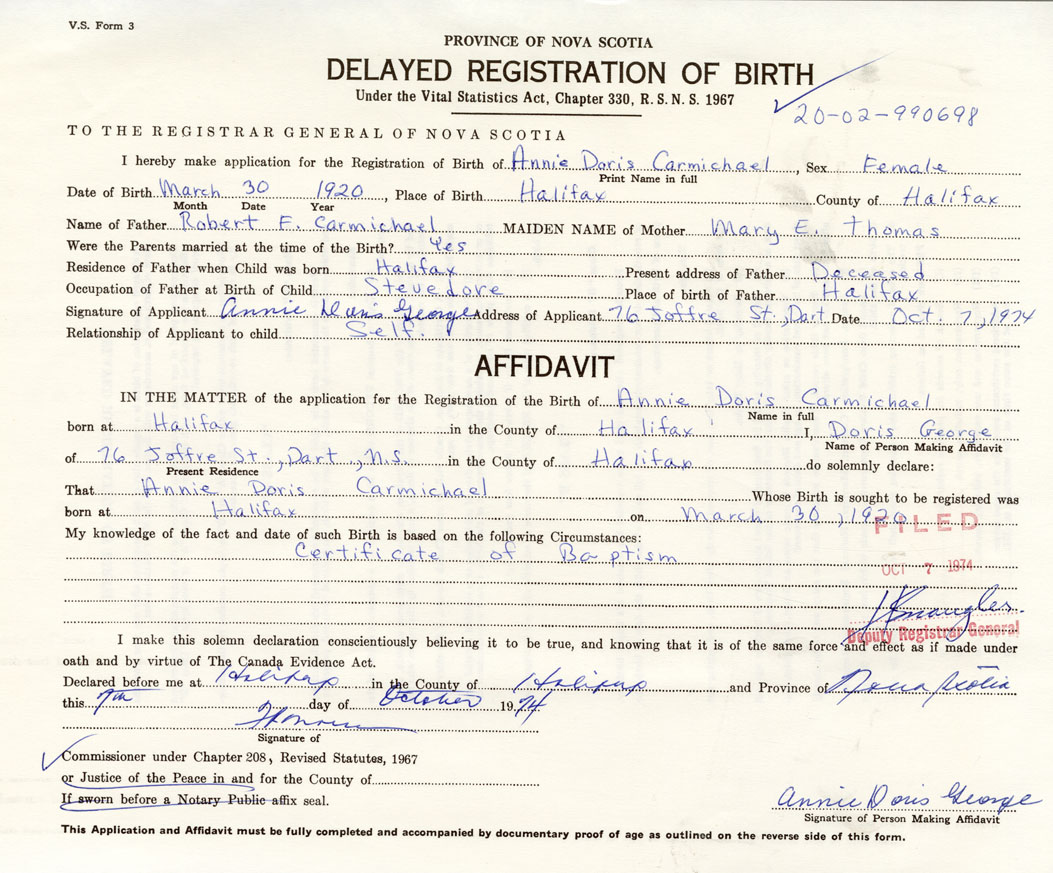 V.S. Form 3
PROVINCE OF NOVA SCOTIA
DELAYED REGISTRATION OF BIRTH
Under the Vital Statistics Act, Chapter 330, R.S.N.S. 1967
20-02-990698
TO THE REGISTRAR GENERAL OF NOVA SCOTIA
I hereby make application for the Registration of Birth of Annie Doris Carmichael, Sex Female
Print Name in full
Date of Birth March 30 1920, Place of Birth Halifax County of Halifax
Month Date Year
Name of Father Robert F. Carmichael MAIDEN NAME of Mother Mary E. Thomas
Were the Parents married at the time of the Birth? Yes
Residence of Father when Child was born Halifax Present address of Father Deceased
Occupation of Father at Birth of Child Stevedore Place of birth of Father Halifax
Signature of Applicant Annie Doris George Address of Applicant 76 Joffre St., Dart. Date Oct 7, 1974
Relationship of Applicant to child Self.
AFFIDAVIT
IN THE MATTER of the application for the Registration of the Birth of Annie Doris Carmichael
Name in full
born at Halifax in the County of Halifax I, Doris George
Name of Person Making Affidavit
of 76 Joffre St., Dart, N.S. in the County of Halifax do solemnly declare:
Present Residence
That Annie Doris Carmichael Whose Birth is sought to be registered was
born at Halifax on March 30, 1920
FILED
My knowledge of the fact and date of such Birth is based on the following Circumstances:
Certificate of Baptism
OCT 7 1974
Deputy Registrar General
I make this solemn declaration conscientiously believing it to be true, and knowing that it is of the same force and effect as if made under
oath and by virtue of The Canada Evidence Act.
Declared before me at Halifax in the County of Halifax and Province of Nova Scotia
this 7th day of October 1974
Signature of
Commissioner under Chapter 208, Revised Statutes, 1967
or Justice of the Peace in and for the County of
If sworn before a Notary Public affix seal.
Annie Doris George
Signature of Person Making Affidavit
This Application and Affidavit must be fully completed and accompanied by documentary proof of age as outlined on the reverse side of this form.